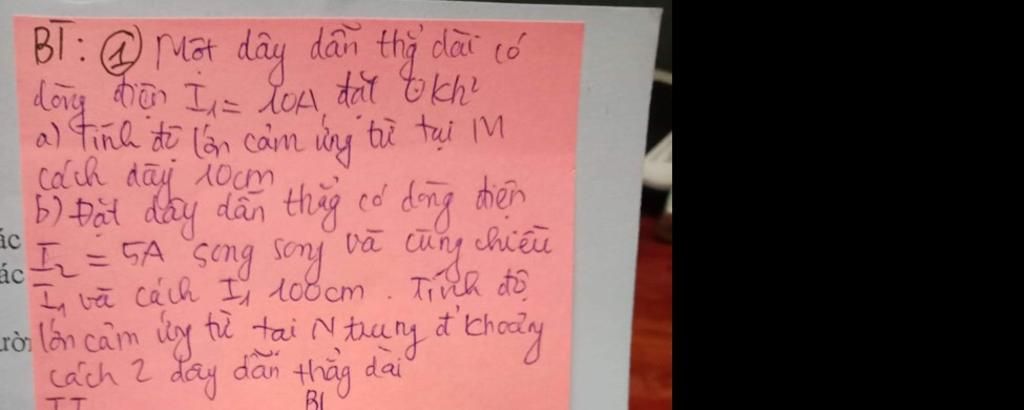 BT: ① Một dây dẫn thẳ dài có
dòng điện I₁ = 10A đặt kh²
a) Tính độ lớn cảm ứng từ tại M
cách dây 10cm
b) Đặt dây dẫn thẳg có dòng điện
I₂ = 5A song song và cùng chiều
I₁ và cách I₁ 100cm. Tính độ
lớn cảm ứng từ tại N trung đ' khoảng
cách 2 dây dẫn thẳng dài
ác
ác